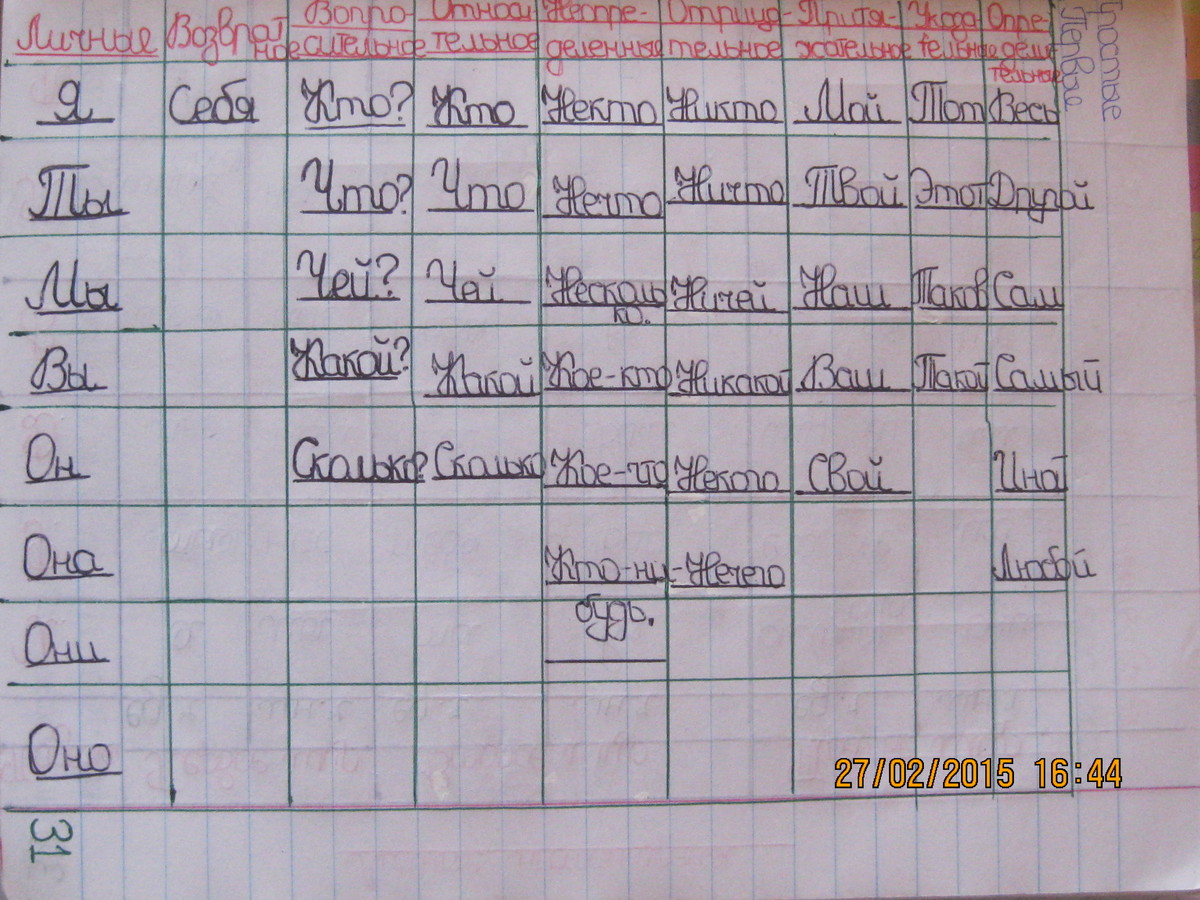 Личные Возвратное Вопросительное Относительное Неопределенные Отрицательное Притяжательное Указательное Определительные
Я Себя Кто? Кто Некто Никто Мой Тот Весь
Ты Что? Что Нечто Ничто Твой Этот Другой
Мы Чей? Чей Несколько. Ничей Наш Таков Сам
Вы Какой? Какой Кое-кто Никакой Ваш Такой Самый
Он Сколько? Сколько Кое-что Некого Свой Иной
Она Кто-ни- Нечего Любой
Они будь.
Оно
Простые
Первые
27/02/2015 16:44
31